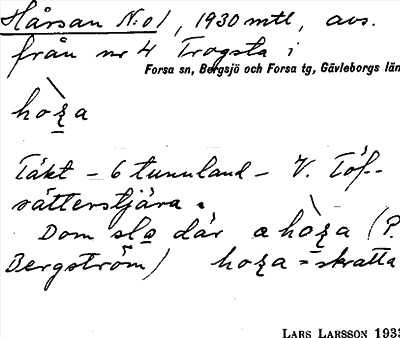 Hårsan N:o 1, 1930 mtl, avs.
från nr 4 Trogsta i
Forsa sn, Bergsjö och Forsa tg, Gävleborgs län
hoʒa
Täkt – 6 tunnland – V. Töf-
sätterstjära.
Dom sla där a hoʒa (P.
Bergström) hoʒa = skratta
LARS LARSSON 1933